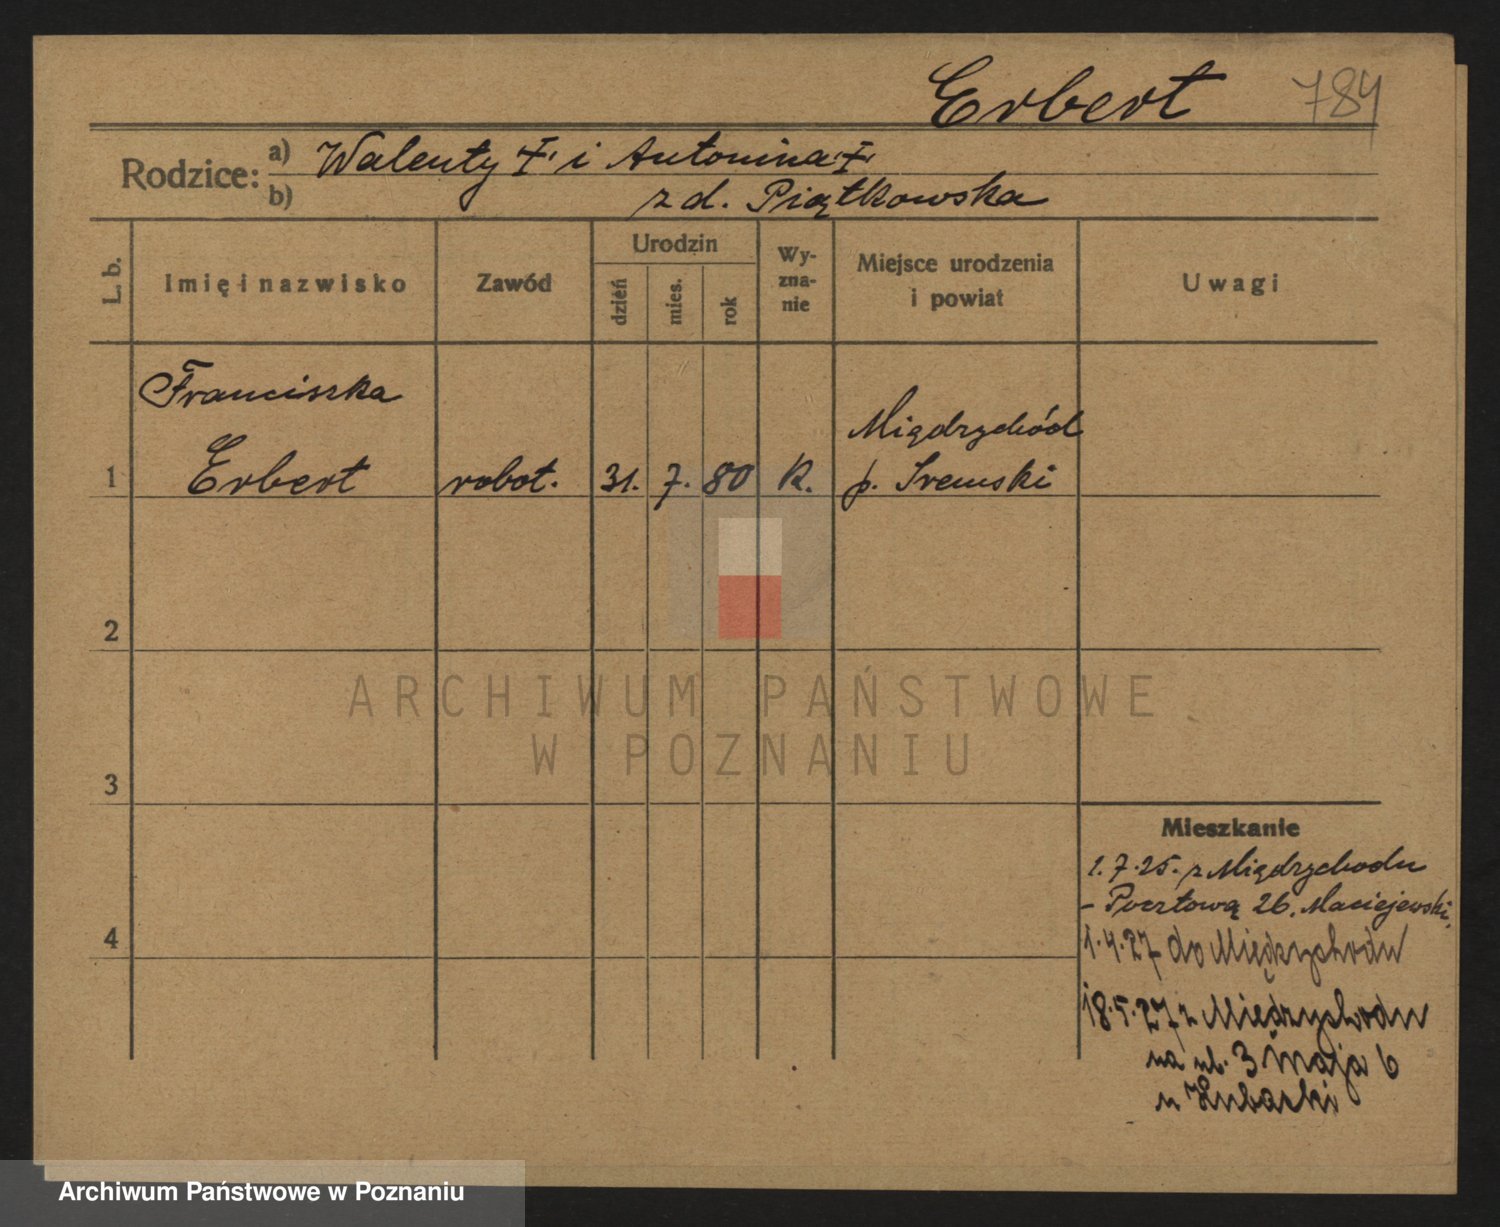 Erbert 784
Rodzice: a) Walenty † i Antonina †
b) z d. Piątkowska
L. b.
Imię i nazwisko
Zawód
Urodzin
dzień
mies.
rok
Wy-
zna-
nie
Miejsce urodzenia
i powiat
Uwagi
Franciszka
Międzychód
1 Erbert robot. 31. 7. 80 K. p. Śremski
2
3
4
ARCHIWUM PAŃSTWOWE
W POZNANIU
Mieszkanie
1.7.25. z Międzychodu
- Pocztową 26. Maciejewski.
1.4.27 do Międzychodu
18.5.27 z Międzychodu
na ul. 3 maja 6
u
Archiwum Państwowe w Poznaniu